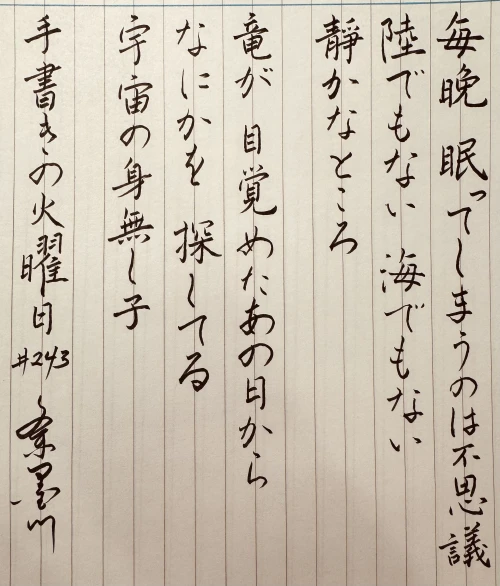 毎晩 眠ってしまうのは不思議
陸でもない 海でもない
靜かなところ
竜が 目覚めたあの日から
なにかを 探してる
宇宙の身無し子
手書きの火曜日
#243